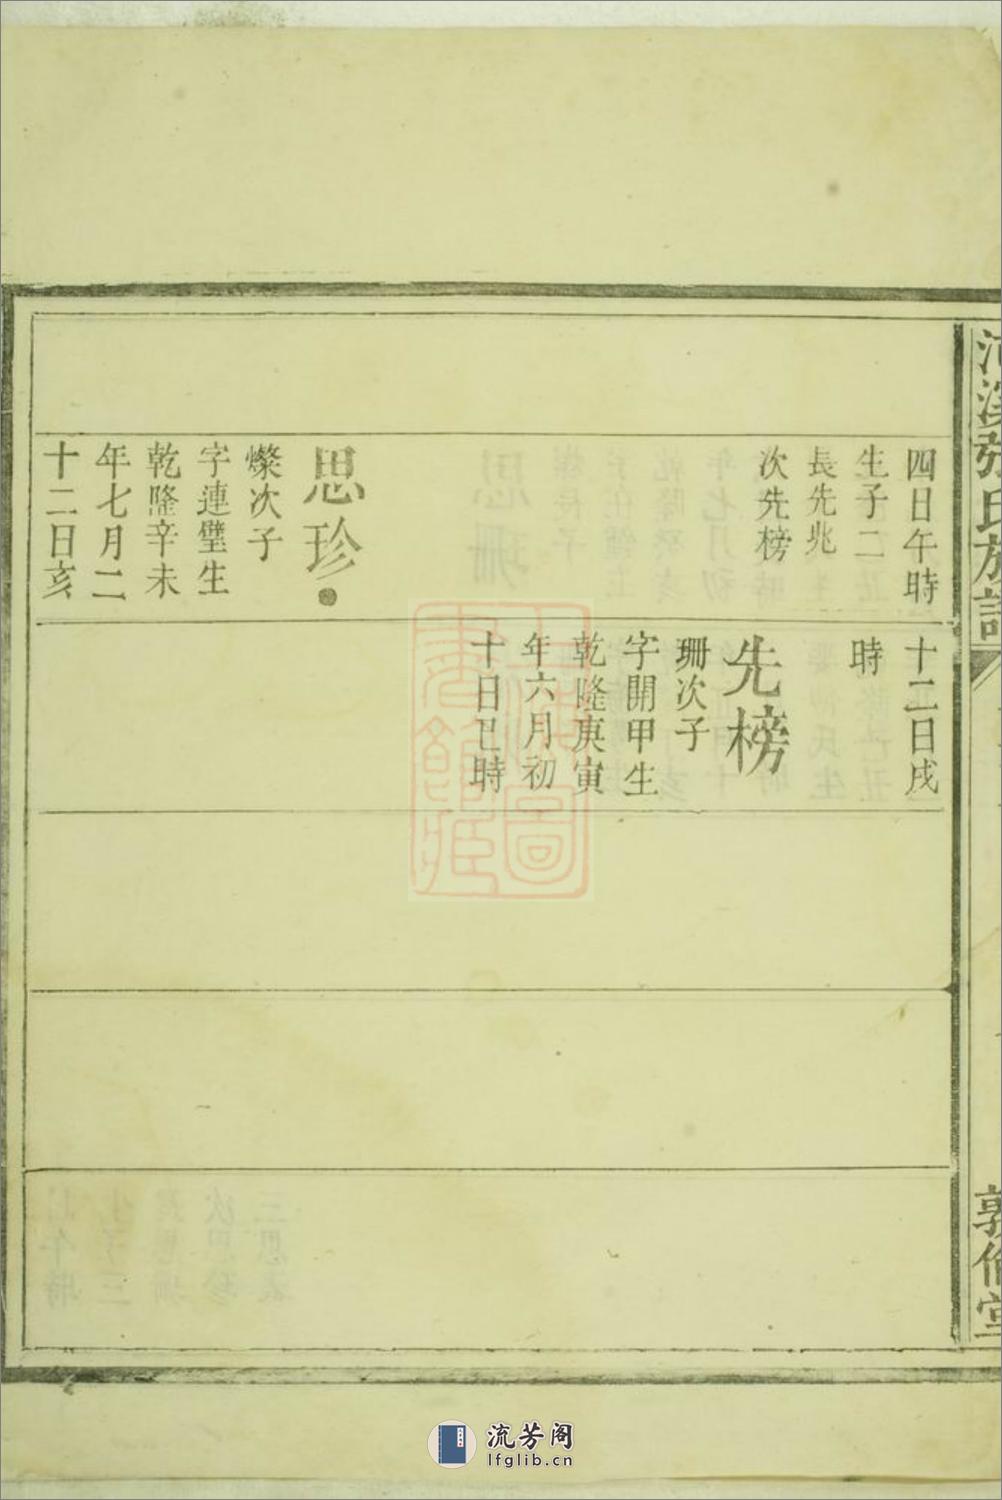 張氏族譜
四日午時
生子二
長先兆
次先榜
思珍
燦次子
字連璧生
乾隆辛未
年七月二
十二日亥
十二日戌
時
先榜
珊次子
字開甲生
乾隆庚寅
年六月初
十日巳時
敦倫堂
流芳阁
lfglib.cn